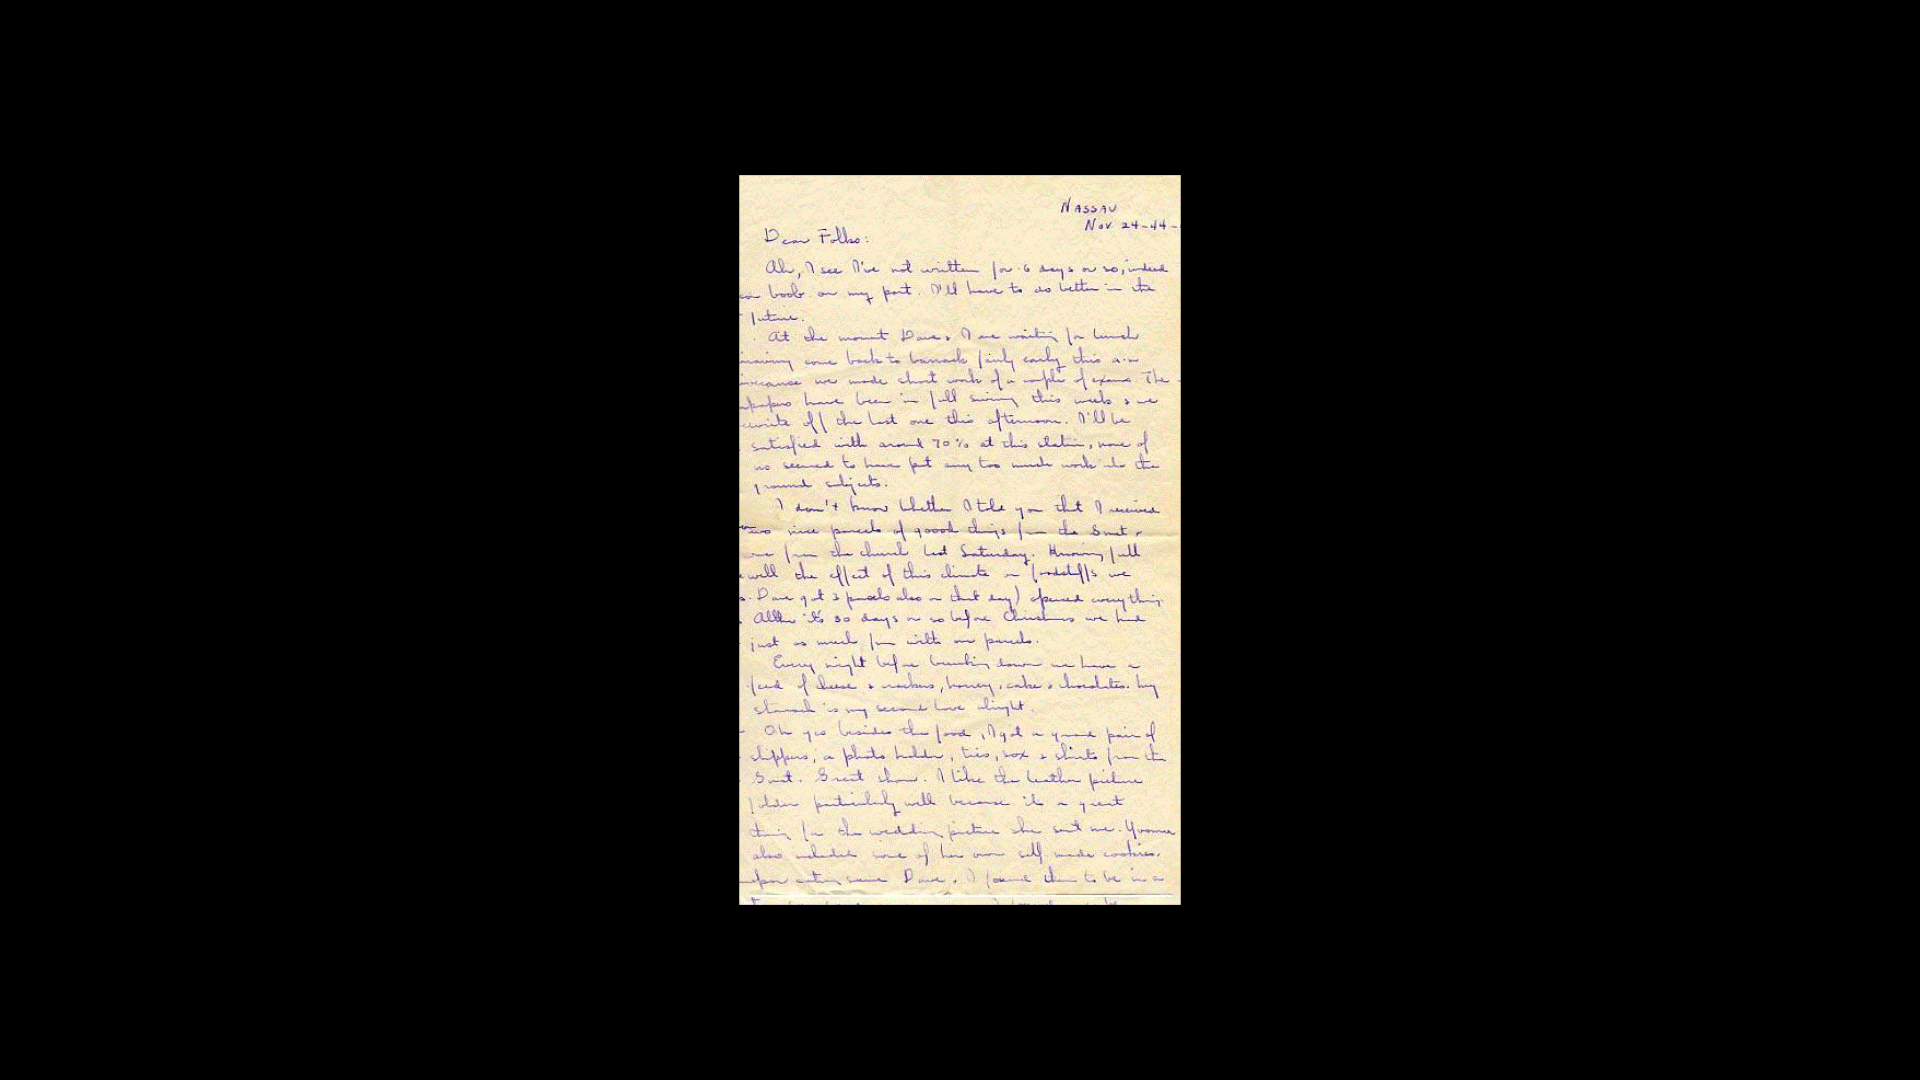 NASSAU
Nov 24-44-
Dear Folks:
Ah, I see I've not written for 6 days or so, indeed
a boob on my part. I'll have to do better in the
future.
At the moment Dave & I are waiting for lunch
having come back to barrack fairly early this a.m
because we made short work of a couple of exams. The
papers have been in full swing this week & we
write off the last one this afternoon. I'll be
satisfied with around 70% at this station, none of
us seemed to have put any too much work into the
ground subjects.
I don't know whether I told you that I received
two nice parcels of goood things from the Smet &
one from the church last Saturday. Knowing full
well the effect of this climate on foodstuffs we
Dave got 3 parcels also on that day) opened everything.
Altho it's 30 days or so before Christmas we had
just as much fun with our parcels.
Every night before bunking down we have a
feed of cheese & crackers, honey, cake & chocolates. My
stomach is my second love alright.
Oh yes besides the food, I got a grand pair of
slippers, a photo holder, ties, sox & shirts from the
Smet. Great show. I like the leather picture
folder particularly well because it's a great
thing for the wedding picture she sent me. Yvonne
also included some of her own self made cookies.
upon eating same Dave & I found them to be in a